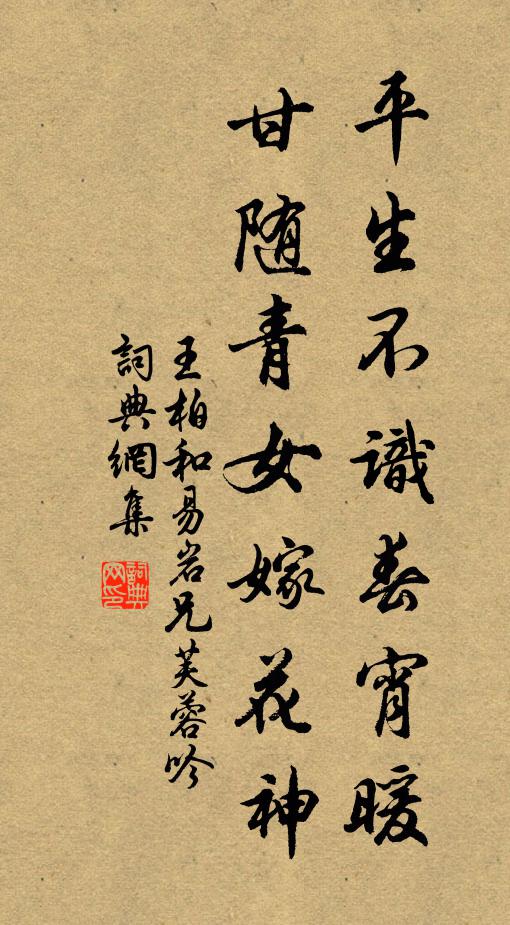 平生不識春宵暖
甘随青女嫁花神
王柏和易岩兄芙蓉吟
詞典網集
詞典网印